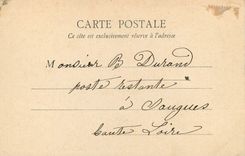 CARTE POSTALE
Ce côté est exclusivement réservé à l'adresse
Monsieur B Durand
poste restante
à Saugues
Haute Loire